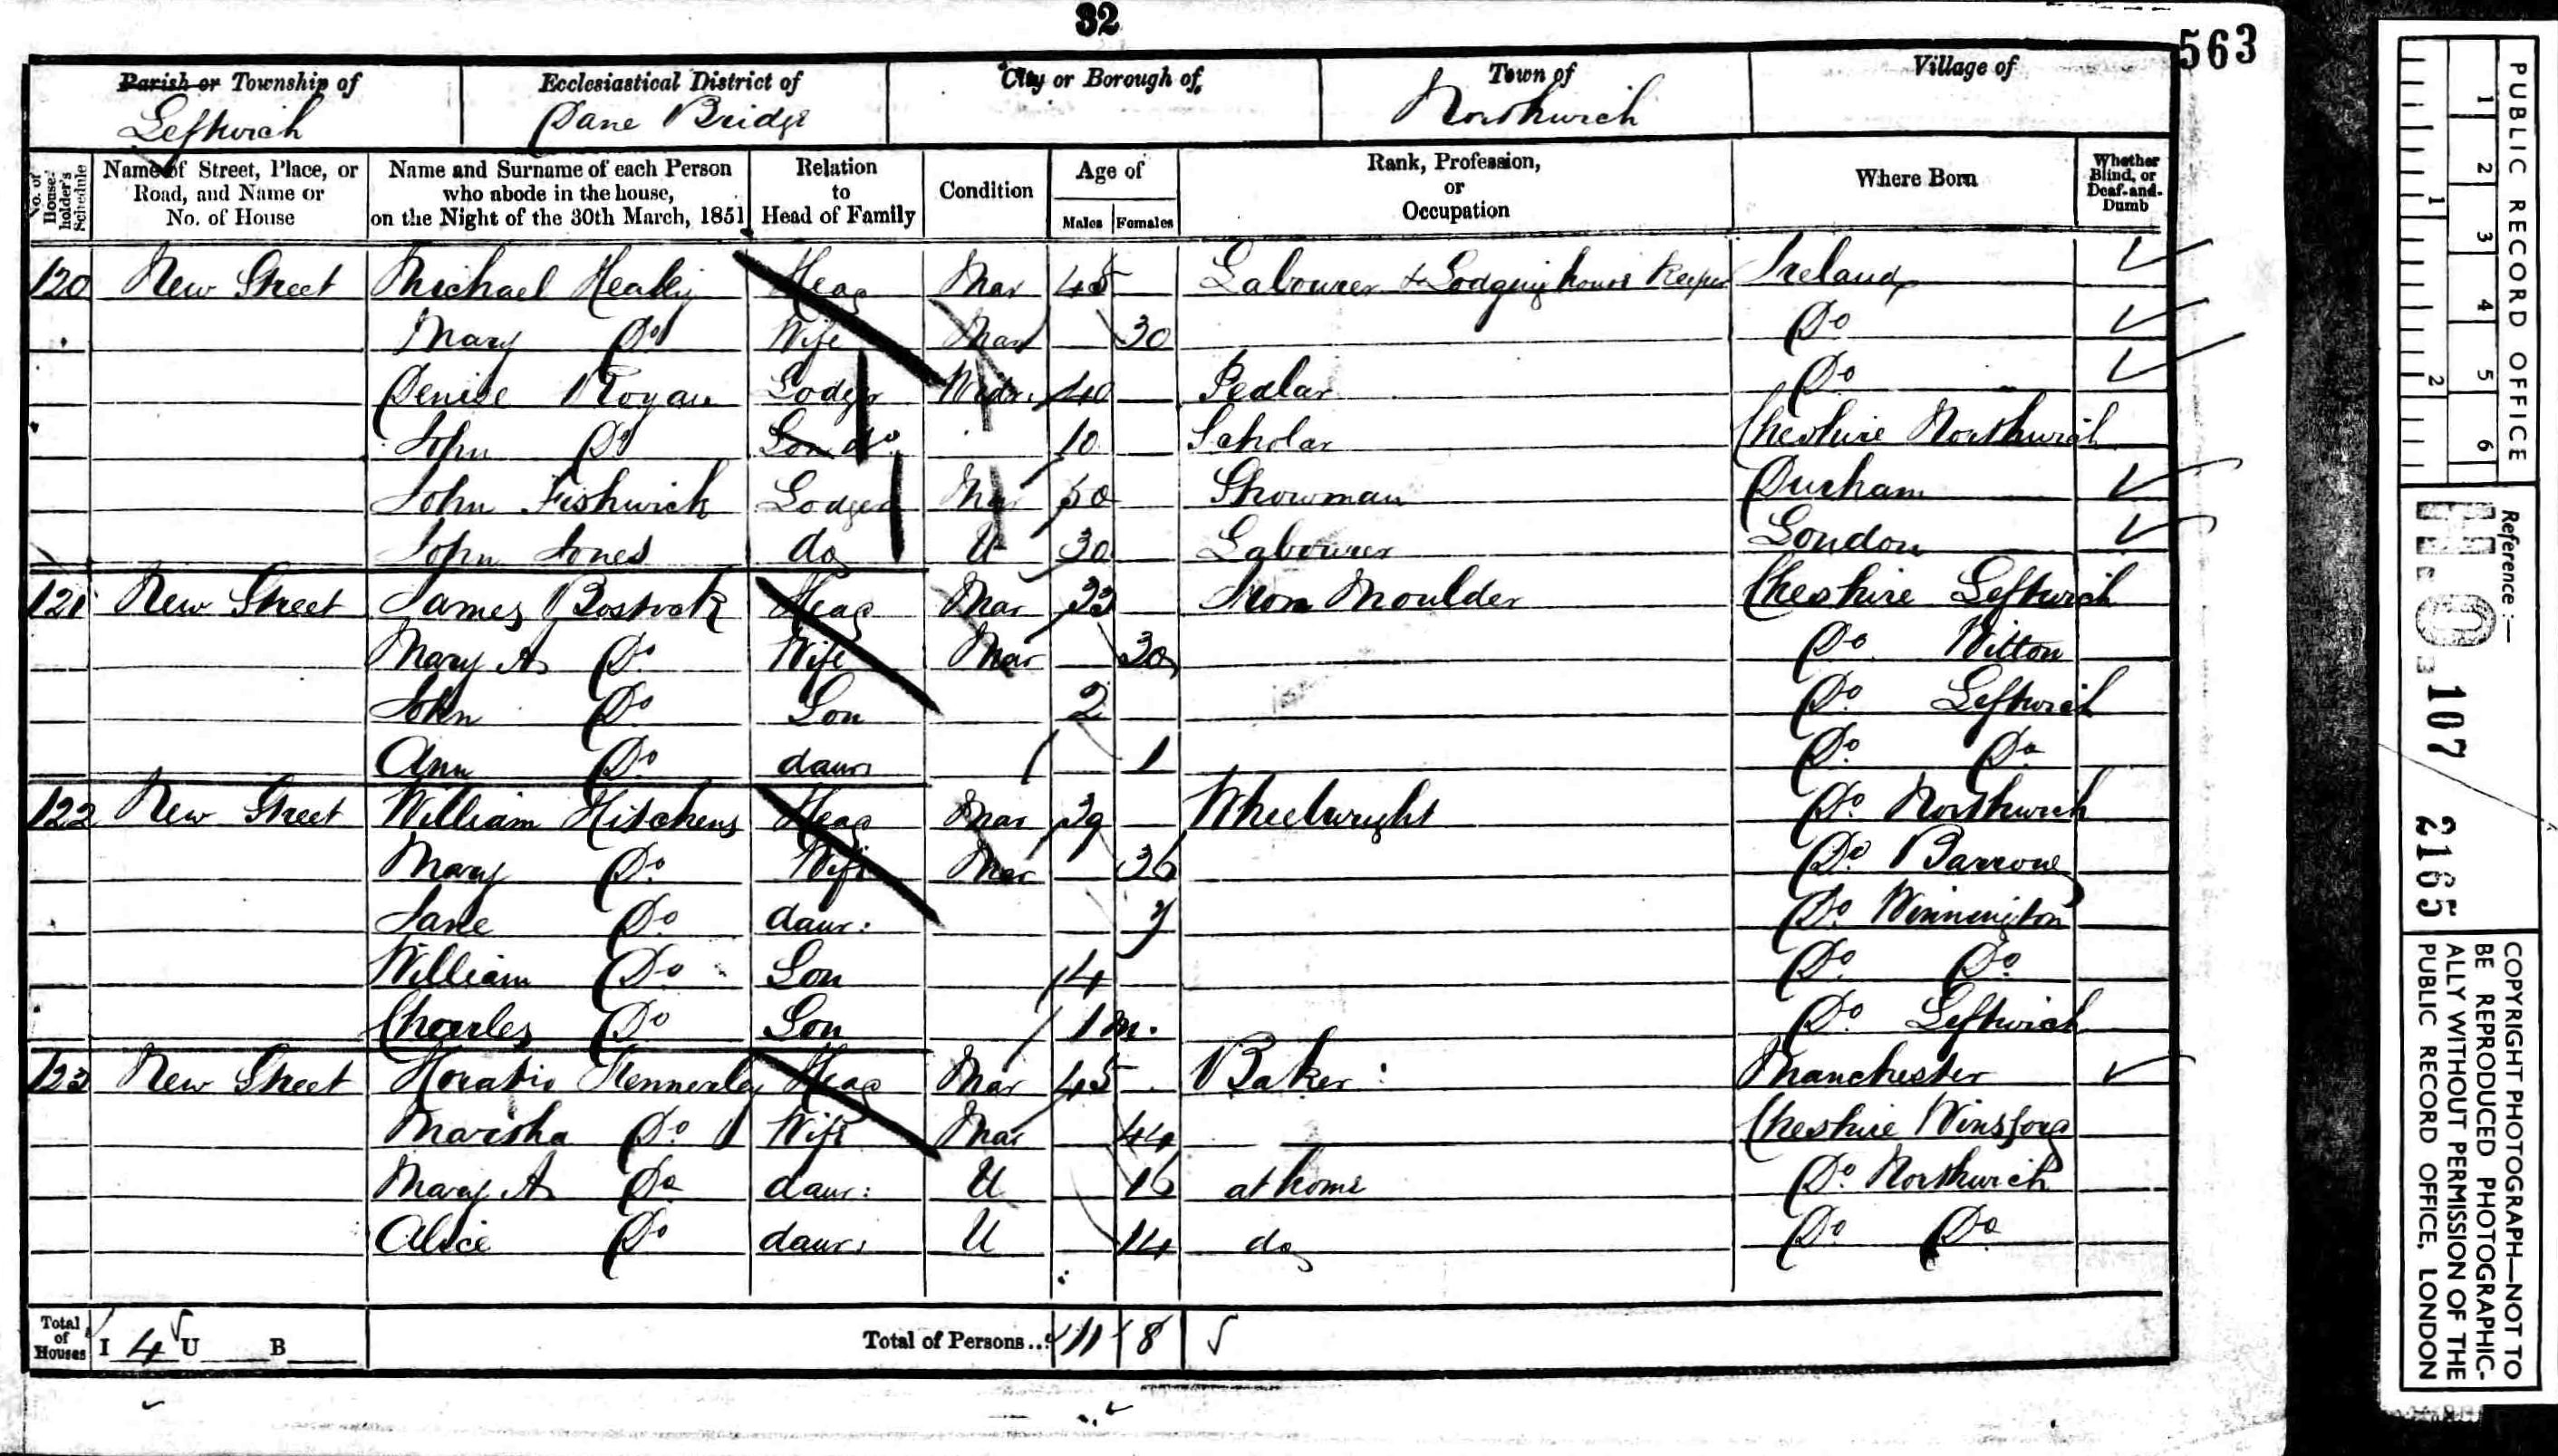 32
563
Parish or Township of
Leftwich
Ecclesiastical District of
Dane Bridge
City or Borough of
Town of
Northwich
Village of
No. of House-holder's Schedule
Name of Street, Place, or Road, and Name or No. of House
Name and Surname of each Person who abode in the house, on the Night of the 30th March, 1851
Relation to Head of Family
Condition
Age of
Males Females
Rank, Profession, or Occupation
Where Born
Whether Blind, or Deaf-and-Dumb
120 New Street Michael Healey Head Mar 45 Labourer & Lodging house Keeper Ireland
Mary Do Wife Mar 30 Do
Denise Rogan Lodger Widr. 40 Pedlar Do
John Do Son do 10 Scholar Cheshire Northwich
John Fishwick Lodger Mar 50 Showman Durham
John Jones do U 30 Labourer London
121 New Street James Bostock Head Mar 33 Iron Moulder Cheshire Leftwich
Mary A Do Wife Mar 30 Do Witton
John Do Son 2 Do Leftwich
Ann Do daur 1 Do Do
122 New Street William Hitchens Head Mar 39 Wheelwright Do Northwich
Mary Do Wife Mar 36 Do Barrow
Jane Do daur: 7 Do Winnington
William Do Son 4 Do Do
Charles Do Son 1 m. Do Leftwich
123 New Street Horatio Kennerley Head Mar 45 Baker Manchester
Martha Do Wife Mar 44 Cheshire Winsford
Mary A Do daur: U 16 at home Do Northwich
Alice Do daur: U 14 do Do Do
Total of Houses I 4 U B Total of Persons... 11 8
PUBLIC RECORD OFFICE
1 2 3 4 5 6
1 2
Reference :—
H.O. 107 / 2165
COPYRIGHT PHOTOGRAPH—NOT TO
BE REPRODUCED PHOTOGRAPHIC-
ALLY WITHOUT PERMISSION OF THE
PUBLIC RECORD OFFICE, LONDON